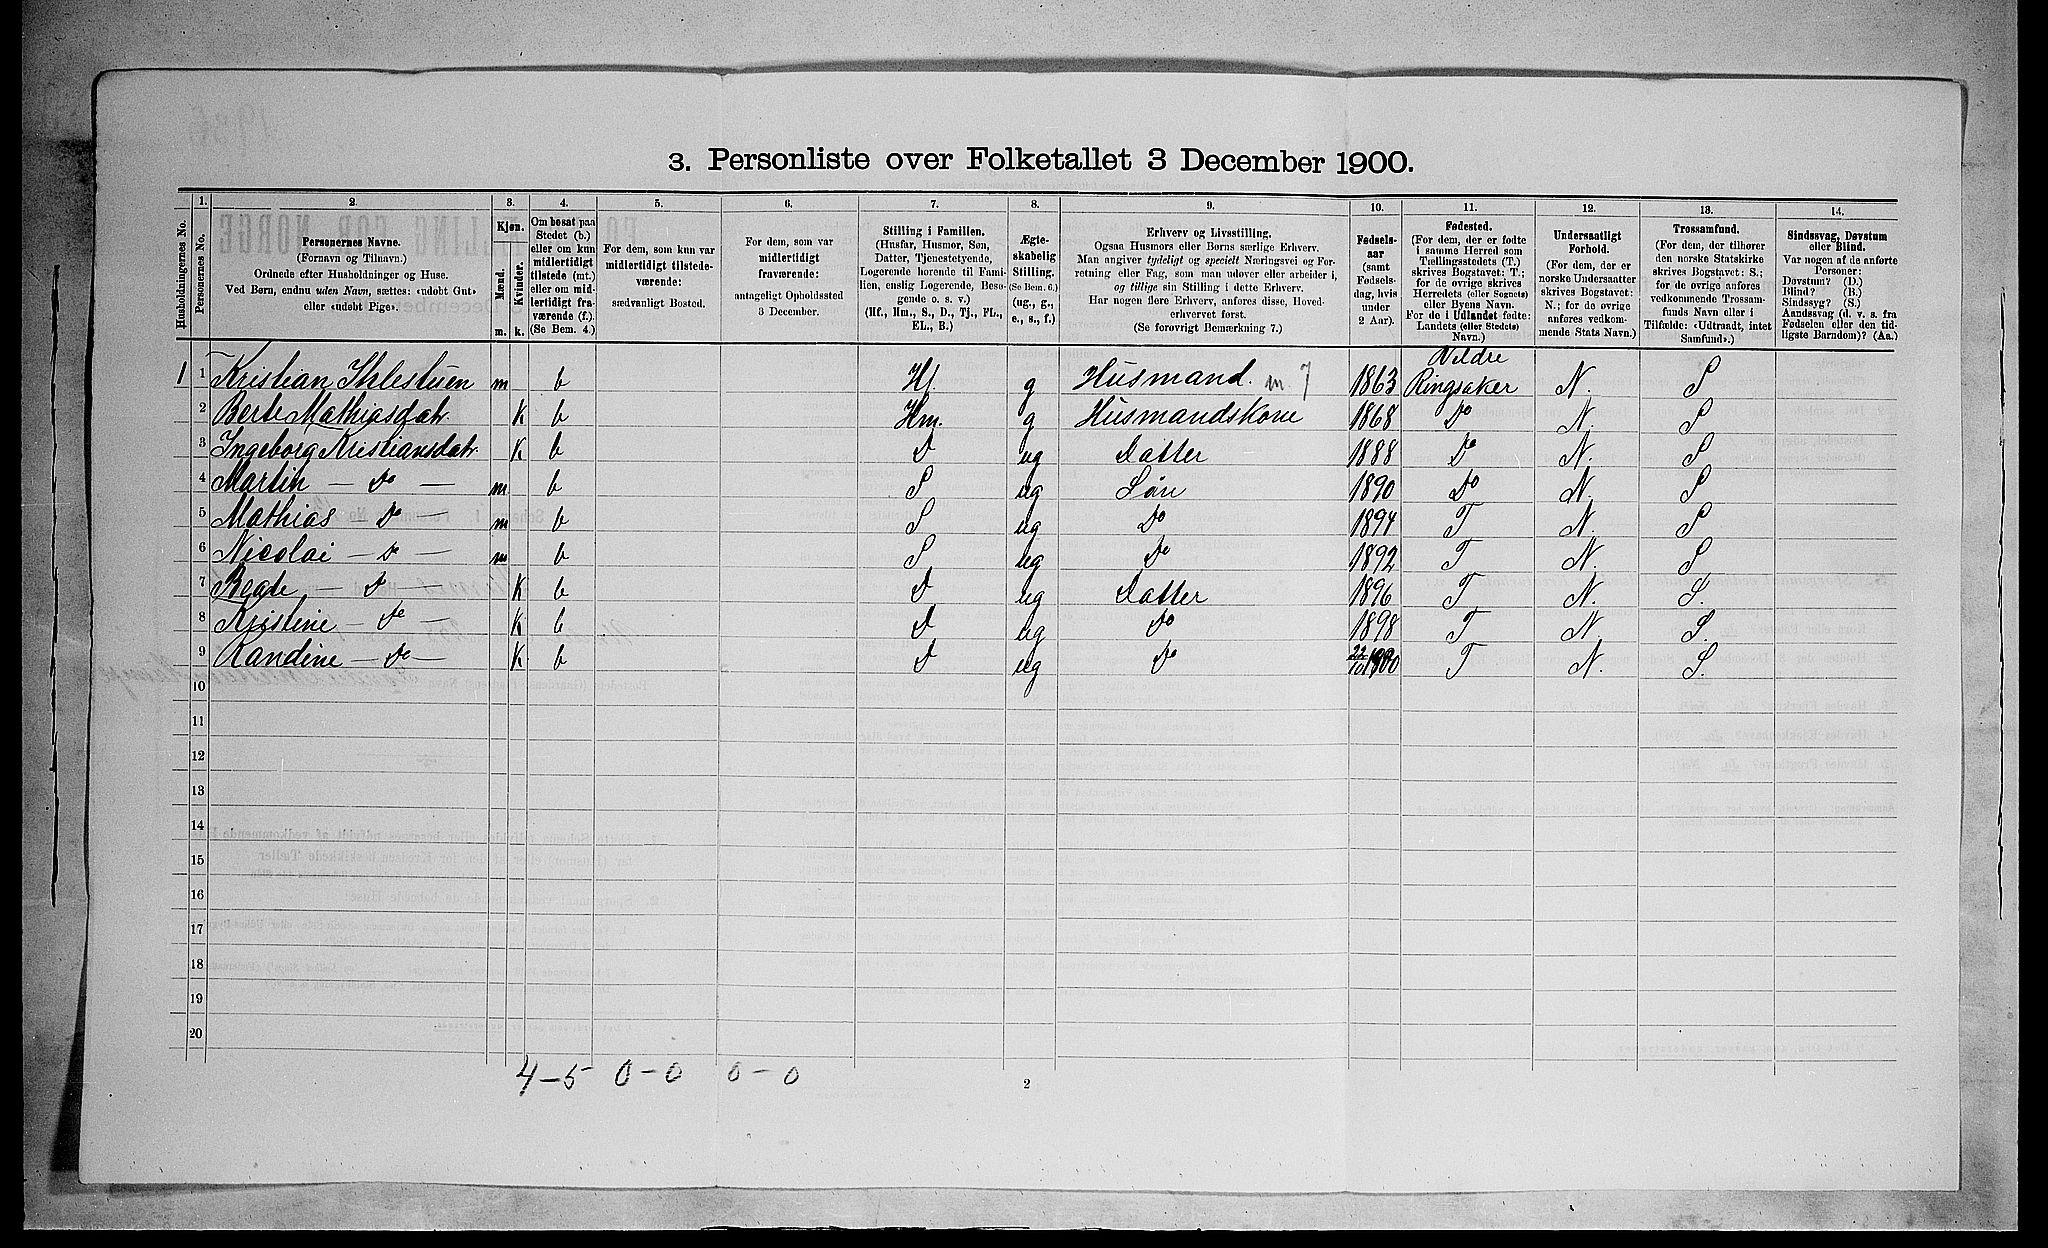 3. Personliste over Folketallet 3 December 1900.
1. 2. 3. 4. 5. 6. 7. 8. 9. 10. 11. 12. 13. 14.
Husholdningernes No.
Personernes No.
Personernes Navne.
(Fornavn og Tilnavn.)
Ordnede efter Husholdninger og Huse.
Ved Børn, endnu uden Navn, sættes: «udøbt Gut»
eller «udøbt Pige».
Kjøn.
Mænd.
Kvinder.
m. k.
Om bosat paa
Stedet (b.)
eller om kun
midlertidigt
tilstede (mt.)
eller om mid-
lertidigt fra-
værende (f.).
(Se Bem. 4.)
For dem, som kun var
midlertidigt tilstede-
værende:
sædvanligt Bosted.
For dem, som var
midlertidigt
fraværende:
antageligt Opholdssted
3 December.
Stilling i Familien.
(Husfar, Husmor, Søn,
Datter, Tjenestetyende,
Logerende hørende til Fami-
lien, enslig Logerende, Besø-
gende o. s. v.)
(Hf., Hm., S., D., Tj., FL.,
EL., B.)
Ægte-
skabelig
Stilling.
(Se Bem. 6.)
(ug., g.,
e., s., f.)
Erhverv og Livsstilling.
Ogsaa Husmors eller Børns særlige Erhverv.
Man angiver tydeligt og specielt Næringsvei og For-
retning eller Fag, som man udøver eller arbeider i,
og tillige sin Stilling i dette Erhverv.
Har nogen flere Erhverv, anføres disse, Hoved-
erhvervet først.
(Se forøvrigt Bemærkning 7.)
Fødsels-
aar
(samt
Fødsels-
dag, hvis
under
2 Aar).
Fødested.
(For dem, der er fødte
i samme Herred som
Tællingsstedets (T.)
skrives Bogstavet: T.;
for de øvrige skrives
Herredets (eller Sognets)
eller Byens Navn.
For de i Udlandet fødte:
Landets (eller Stedets)
Navn.)
Undersaatligt
Forhold.
(For dem, der er
norske Undersaatter
skrives Bogstavet:
N.; for de øvrige
anføres vedkom-
mende Stats Navn.)
Trossamfund.
(For dem, der tilhører
den norske Statskirke
skrives Bogstavet: S.;
for de øvrige anføres
vedkommende Trossam-
funds Navn eller i
Tilfælde: «Udtraadt, intet
Samfund».)
Sindssvag, Døvstum
eller Blind.
Var nogen af de anførte
Personer:
Døvstum? (D.)
Blind? (B.)
Sindssyg? (S.)
Aandssvag (d. v. s. fra
Fødselen eller den tid-
ligste Barndom)? (Aa.)
1 1 Kristian m b Hf. g Husmand. m. 7 1863 Veldre Ringsaker N. S
2 Berte Mathiasdatr. K b Hm. g Husmandskone 1868 Do N. S
3 Ingeborg Kristiansdatr. K b D ug Datter 1888 Do N. S
4 Martin — Do — m b S ug Søn 1890 Do N. S
5 Mathias — Do — m b S ug Do 1894 T N. S
6 Nicolai — Do — m b S ug Do 1892 T N. S
7 Beate — D — K b D ug Datter 1896 T N. S.
8 Kristine — Do — K b D ug Do 1898 T N. S.
9 Randine — Do — K b D ug Do 22/10 1900 T N. S.
10
11
12
13
14
15
16
17
18
19
20
4 – 5 0 – 0 0 – 0
2